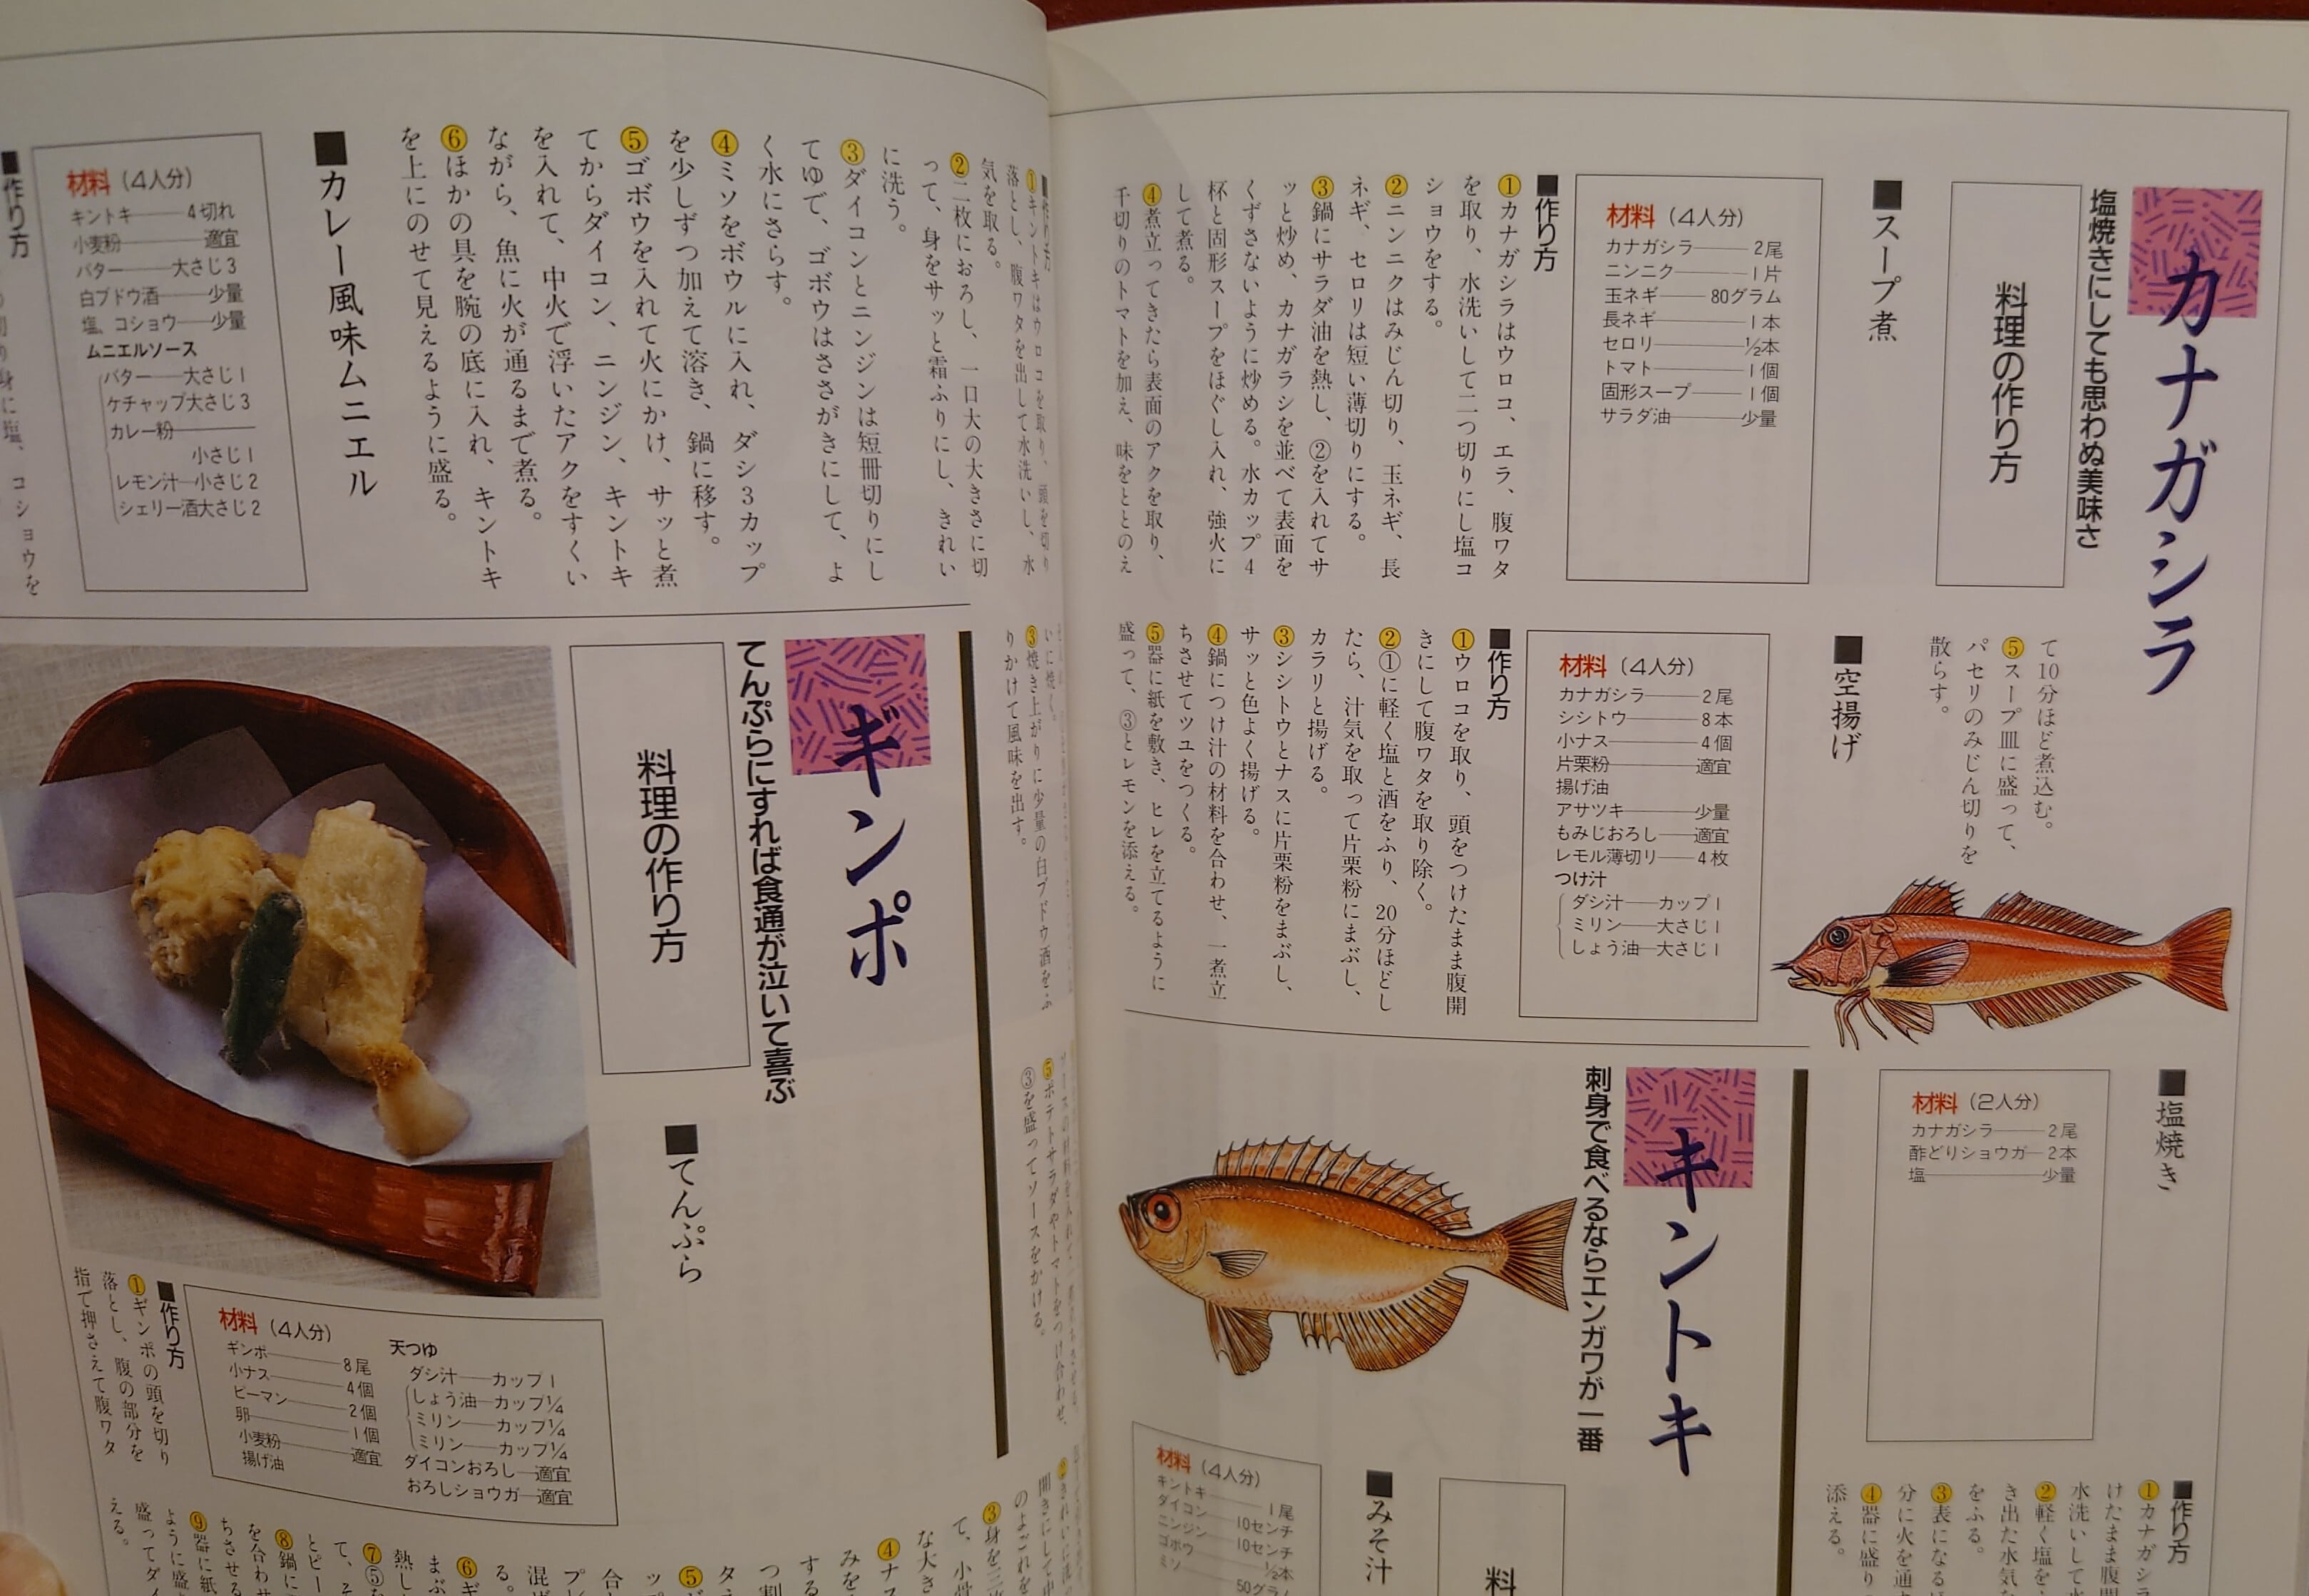 カナガシラ
塩焼きにしても思わぬ美味さ
料理の作り方
■スープ煮
材料（4人分）
カナガシラ――2尾
ニンニク――1片
玉ネギ――80グラム
長ネギ――1本
セロリ――½本
トマト――1個
固形スープ――1個
サラダ油――少量
■作り方
①カナガシラはウロコ、エラ、腹ワタ
を取り、水洗いして二つ切りにし塩コ
ショウをする。
②ニンニクはみじん切り、玉ネギ、長
ネギ、セロリは短い薄切りにする。
③鍋にサラダ油を熱し、②を入れてサ
ッと炒め、カナガラシを並べて表面を
くずさないように炒める。水カップ4
杯と固形スープをほぐし入れ、強火に
して煮る。
④煮立ってきたら表面のアクを取り、
千切りのトマトを加え、味をととのえ
て10分ほど煮込む。
⑤スープ皿に盛って、
パセリのみじん切りを
散らす。
■空揚げ
材料（4人分）
カナガシラ――2尾
シシトウ――8本
小ナス――4個
片栗粉――適宜
揚げ油
アサツキ――少量
もみじおろし――適宜
レモル薄切り――4枚
つけ汁
ダシ汁――カップ1
ミリン――大さじ1
しょう油――大さじ1
■作り方
①ウロコを取り、頭をつけたまま腹開
きにして腹ワタを取り除く。
②①に軽く塩と酒をふり、20分ほどし
たら、汁気を取って片栗粉にまぶし、
カラリと揚げる。
③シシトウとナスに片栗粉をまぶし、
サッと色よく揚げる。
④鍋につけ汁の材料を合わせ、一煮立
ちさせてツユをつくる。
⑤器に紙を敷き、ヒレを立てるように
盛って、③とレモンを添える。
■塩焼き
材料（2人分）
カナガシラ――2尾
酢どりショウガ――2本
塩――少量
■作り方
①カナガシラ
けたまま腹開
水洗いして水
②軽く塩を
き出た水気を
をふる。
③表になる
分に火を通
④器に盛り
添える。
キントキ
刺身で食べるならエンガワが一番
料
■みそ汁
材料（4人分）
キントキ――1尾
ダイコン――10センチ
ニンジン――10センチ
ゴボウ――½本
ミソ――50グラム
■作り方
①キントキはウロコを取り、頭を切り
落とし、腹ワタを出して水洗いし、水
気を取る。
②二枚におろし、一口大の大きさに切
って、身をサッと霜ふりにし、きれい
に洗う。
③ダイコンとニンジンは短冊切りにし
てゆで、ゴボウはささがきにして、よ
く水にさらす。
④ミソをボウルに入れ、ダシ3カップ
を少しずつ加えて溶き、鍋に移す。
⑤ゴボウを入れて火にかけ、サッと煮
てからダイコン、ニンジン、キントキ
を入れて、中火で浮いたアクをすくい
ながら、魚に火が通るまで煮る。
⑥ほかの具を腕の底に入れ、キントキ
を上にのせて見えるように盛る。
■カレー風味ムニエル
材料（4人分）
キントキ――4切れ
小麦粉――適宜
バター――大さじ3
白ブドウ酒――少量
塩、コショウ――少量
ムニエルソース
バター――大さじ1
ケチャップ大さじ3
カレー粉――
小さじ1
レモン汁――小さじ2
シェリー酒大さじ2
■作り方
切り身に塩、コショウを
いに焼く。
③焼き上がりに少量の白ブドウ酒をふ
りかけて風味を出す。
⑤ポテトサラダやトマトをつけ合わせ、
③を盛ってソースをかける。
ギンポ
てんぷらにすれば食通が泣いて喜ぶ
料理の作り方
■てんぷら
材料（4人分）
ギンポ――8尾
小ナス――4個
ピーマン――2個
卵――1個
小麦粉――適宜
揚げ油
天つゆ
ダシ汁――カップ1
しょう油――カップ¼
ミリン――カップ¼
ミリン――カップ¼
ダイコンおろし――適宜
おろしショウガ――適宜
■作り方
①ギンポの頭を切り
落とし、腹の部分を
指で押さえて腹ワタ
開きにして中
のよごれを
③身を三枚
て、小骨
な大き
④ナス
みを
する
つ割
⑤
ップ
合
プレ
混ぜ
る。
⑥ギ
まぶ
熱し
⑦⑤
て、
とピー
⑧鍋に
を合わせ
ちさせる
⑨器に紙
ように盛
盛ってダイ
える。